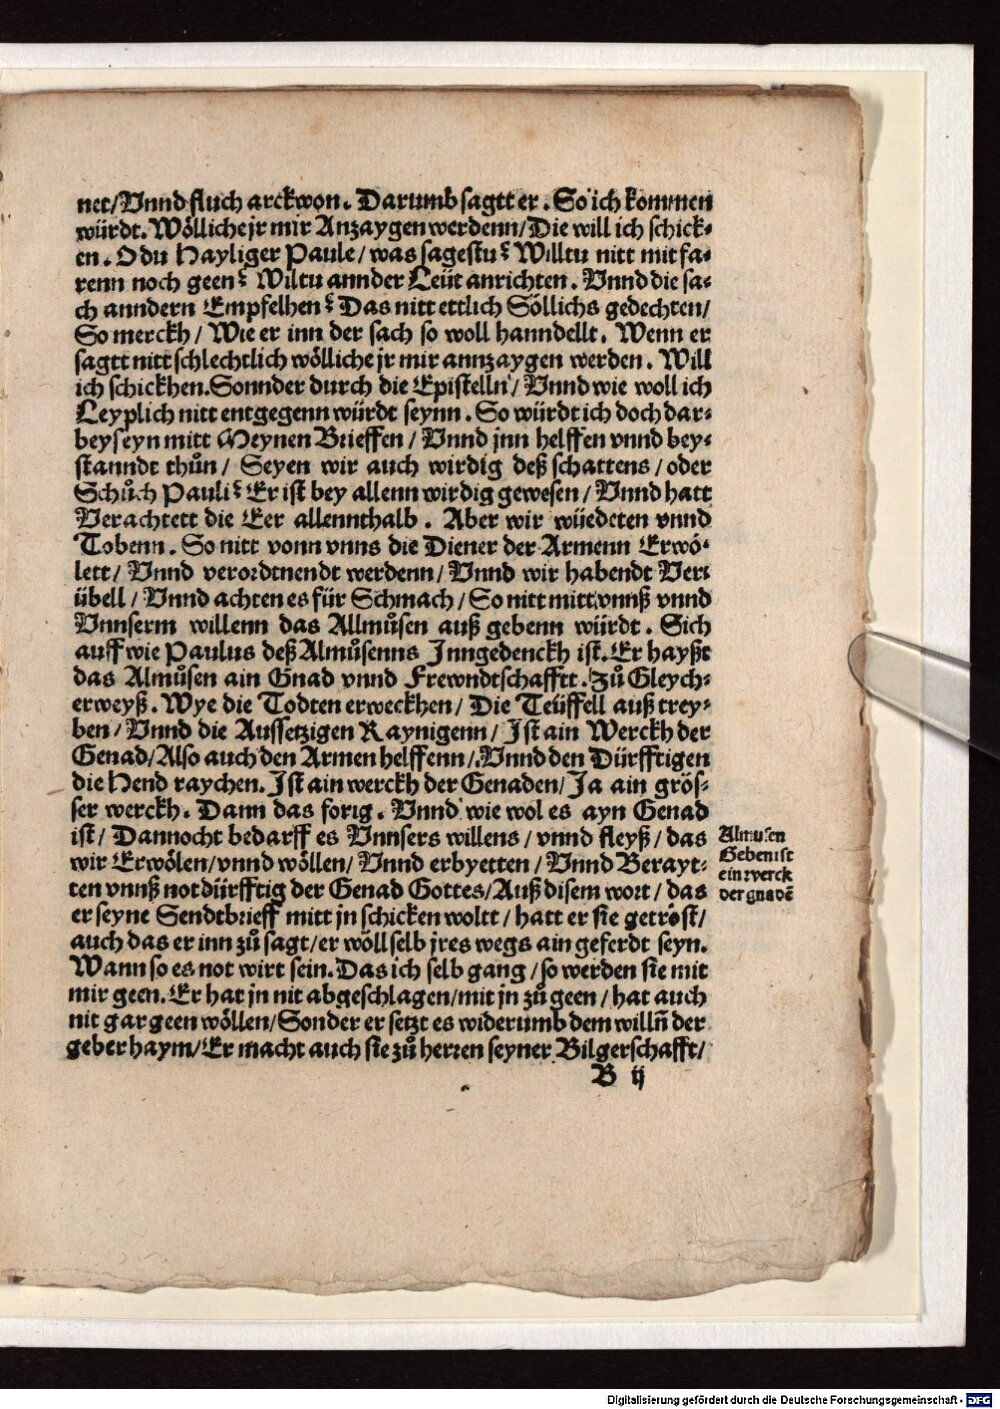 net/Vnnd fluch arckwon. Darumb sagtt er. So ich kommen
würdt. Wölliche jr mir Anzaygen werdenn/Die will ich schick⸗
en. O du Hayliger Paule/was sagestu? Willtu nitt mit fa⸗
renn noch geen? Wiltu annder Leüt anrichten. Vnnd die sa⸗
ch anndern Empfelhen? Das nitt ettlich Söllichs gedechten/
So merckh/ Wie er inn der sach so woll hanndellt. Wenn er
sagtt nitt schlechtlich wölliche jr mir annzaygen werden. Will
ich schickhen. Sonnder durch die Epistelln/ Vnnd wie woll ich
Leyplich nitt entgegenn würdt seynn. So würdt ich doch dar⸗
bey seyn mitt Meynen Brieffen/ Vnnd jnn helffen vnnd bey⸗
standt thůn/ Seyen wir auch wirdig deß schattens/oder
Schůch Pauli? Er ist bey allenn wirdig gewesen/Vnnd hatt
Verachtett die Eer allennthalb. Aber wir wüedeten vnnd
Tobenn. So nitt vonn vnns die Diener der Armenn Erwö⸗
lett/ Vnnd verordtnendt werdenn/Vnnd wir habendt Ver⸗
übell/Vnnd achten es für Schmach/So nitt mitt vnnß vnnd
Vnnserm willenn das Allmůsen auß gebenn würdt. Sich
auff wie Paulus deß Almůsenns Inngedenckh ist. Er hayßt
das Almůsen ain Gnad vnnd Frewndtschafftt. Zů Gleych⸗
erweyß. Wye die Todten erweckhen/ Die Teüffell auß trey⸗
ben/Vnnd die Aussetzigen Raynigenn/Ist ain Werckh der
Genad/Also auch den Armen helffenn/Vnnd den Dürfftigen
die Hend raychen. Ist ain werckh der Genaden/Ja ain grös⸗
ser werckh. Dann das forig. Vnnd wie wol es ayn Genad
ist/ Dannocht bedarff es Vnnsers willens/vnnd fleyß/das
wir Erwölen/vnnd wöllen/Vnnd erbyetten/Vnnd Berayt⸗
ten vnnß notdürfftig der Genad Gottes/Auß disem wort/das
er seyne Sendtbrieff mitt jn schicken woltt/hatt er sie getröst/
auch das er inn zů sagt/er wöll selb jres wegs ain geferdt seyn.
Wann so es not wirt sein. Das ich selb gang/so werden sie mit
mir geen. Er hat jn nit abgeschlagen/mit jn zů geen/hat auch
nit gar geen wöllen/Sonder er setzt es widerumb dem willn̄ der
geber haym/Er macht auch sie zů herren seyner Bilgerschafft/
B ij
Almusen
Geben ist
ein werck
der gnadē
Digitalisierung gefördert durch die Deutsche Forschungsgemeinschaft - DFG